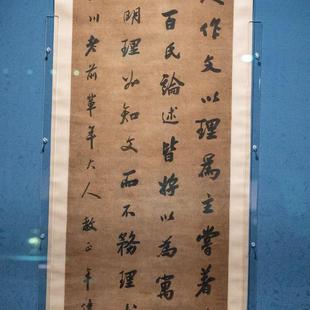 人作文以理爲主嘗著
百氏論述皆將以為寓
明理如知文而不務理
川老前輩年大人教正年